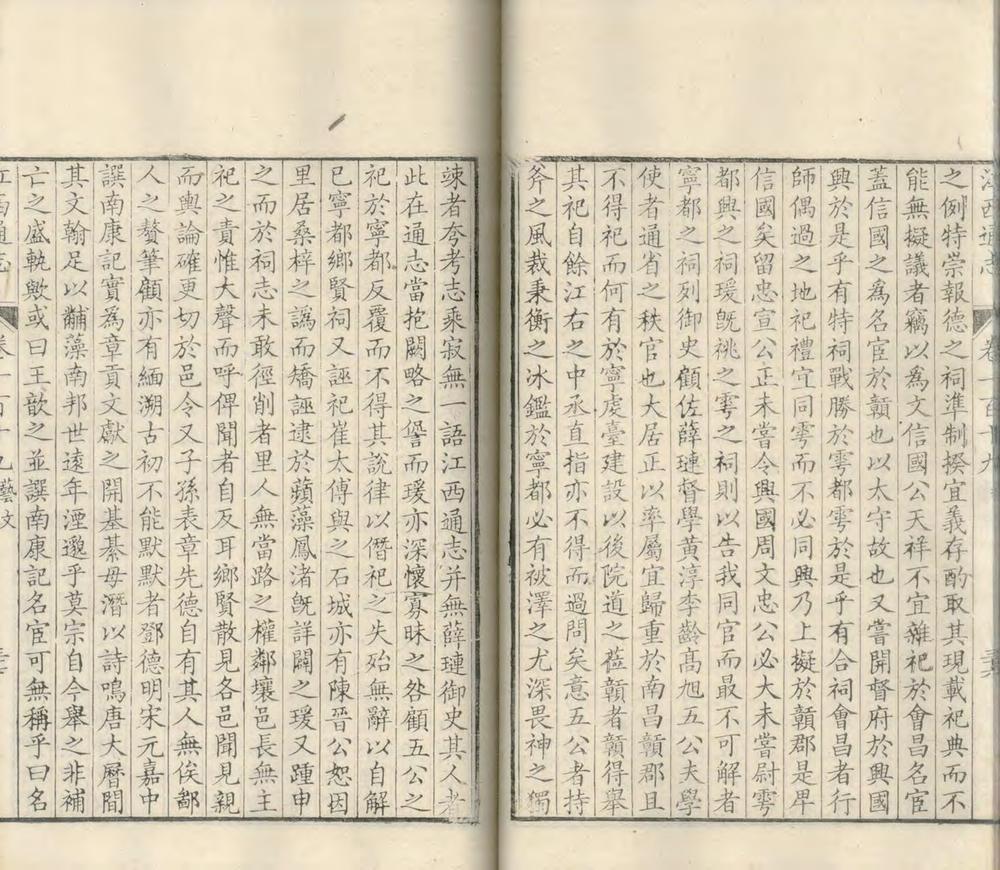 江西通志 卷一百十九 三六
之例特崇報德之祠準制揆宜義存酌取其現載祀典而不
能無擬議者竊以為文信國公天祥不宜雜祀於會昌名宦
蓋信國之為名宦於贛也以太守故也又嘗開督府於興國
興於是乎有特祠戰勝於雩都雩於是乎有合祠會昌者行
師偶過之地祀禮宜同雩而不必同興乃上擬於贛郡是畀
信國矣留忠宣公正未嘗令興國周文忠公必大未嘗尉雩
都興之祠瑗旣祧之雩之祠則以告我同官而最不可解者
寧都之祠列御史顧佐薛璉督學黃淳李齡高旭五公夫學
使者通省之秩官也大居正以率屬宜歸重於南昌贛郡且
不得祀而何有於寧虔臺建設以後院道之蒞贛者贛得舉
其祀自餘江右之中丞直指亦不得而過問矣意五公者持
斧之風裁秉衡之冰鑑於寧都必有被澤之尤深畏神之獨
竦者夸考志乘寂無一語江西通志并無薛璉御史其人者
此在通志當抱闕略之譽而瑗亦深懷寡昧之咎顧五公之
祀於寧都反覆而不得其說律以僭祀之失殆無辭以自解
已寧都鄉賢祠又誣祀崔太傅與之石城亦有陳晉公恕因
里居桑梓之譌而矯誣逮於蘋藻鳳渚旣詳闢之瑗又踵申
之而於祠志未敢徑削者里人無當路之權鄰壤邑長無主
祀之責惟大聲而呼俾聞者自反耳鄉賢散見各邑聞見親
而輿論確更切於邑令又子孫表章先德自有其人無俟鄙
人之贅筆顧亦有緬溯古初不能默默者鄧德明宋元嘉中
譔南康記實為章貢文獻之開基綦毋潛以詩鳴唐大曆間
其文翰足以黼藻南邦世遠年湮邈乎莫宗自今舉之非補
亡之盛軌歟或曰王歆之並譔南康記名宦可無稱乎曰名
江西通志 卷一百十九 藝文 三六